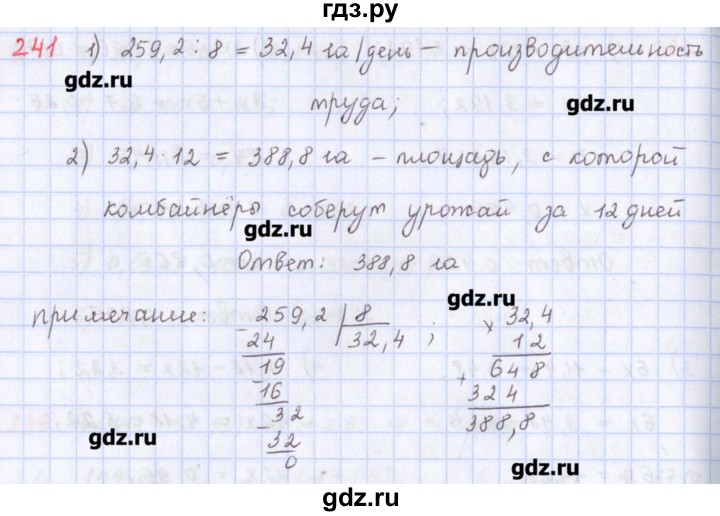 гдз.рф
241 1) 259,2 : 8 = 32,4 га/день – производительность
gdz.ru
труда;
gdz.ru
2) 32,4·12 = 388,8 га – площадь, с которой
комбайнёры соберут урожай за 12 дней
gdz.ru
Ответ: 388,8 га
gdz.ru
примечание: 259,2 | 8 ; × 32,4
24 32,4 12
19 + 648
16 324
32 388,8
32
0
gdz.ru
gdz.ru
gdz.ru